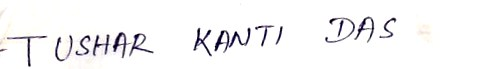 TUSHAR KANTI DAS